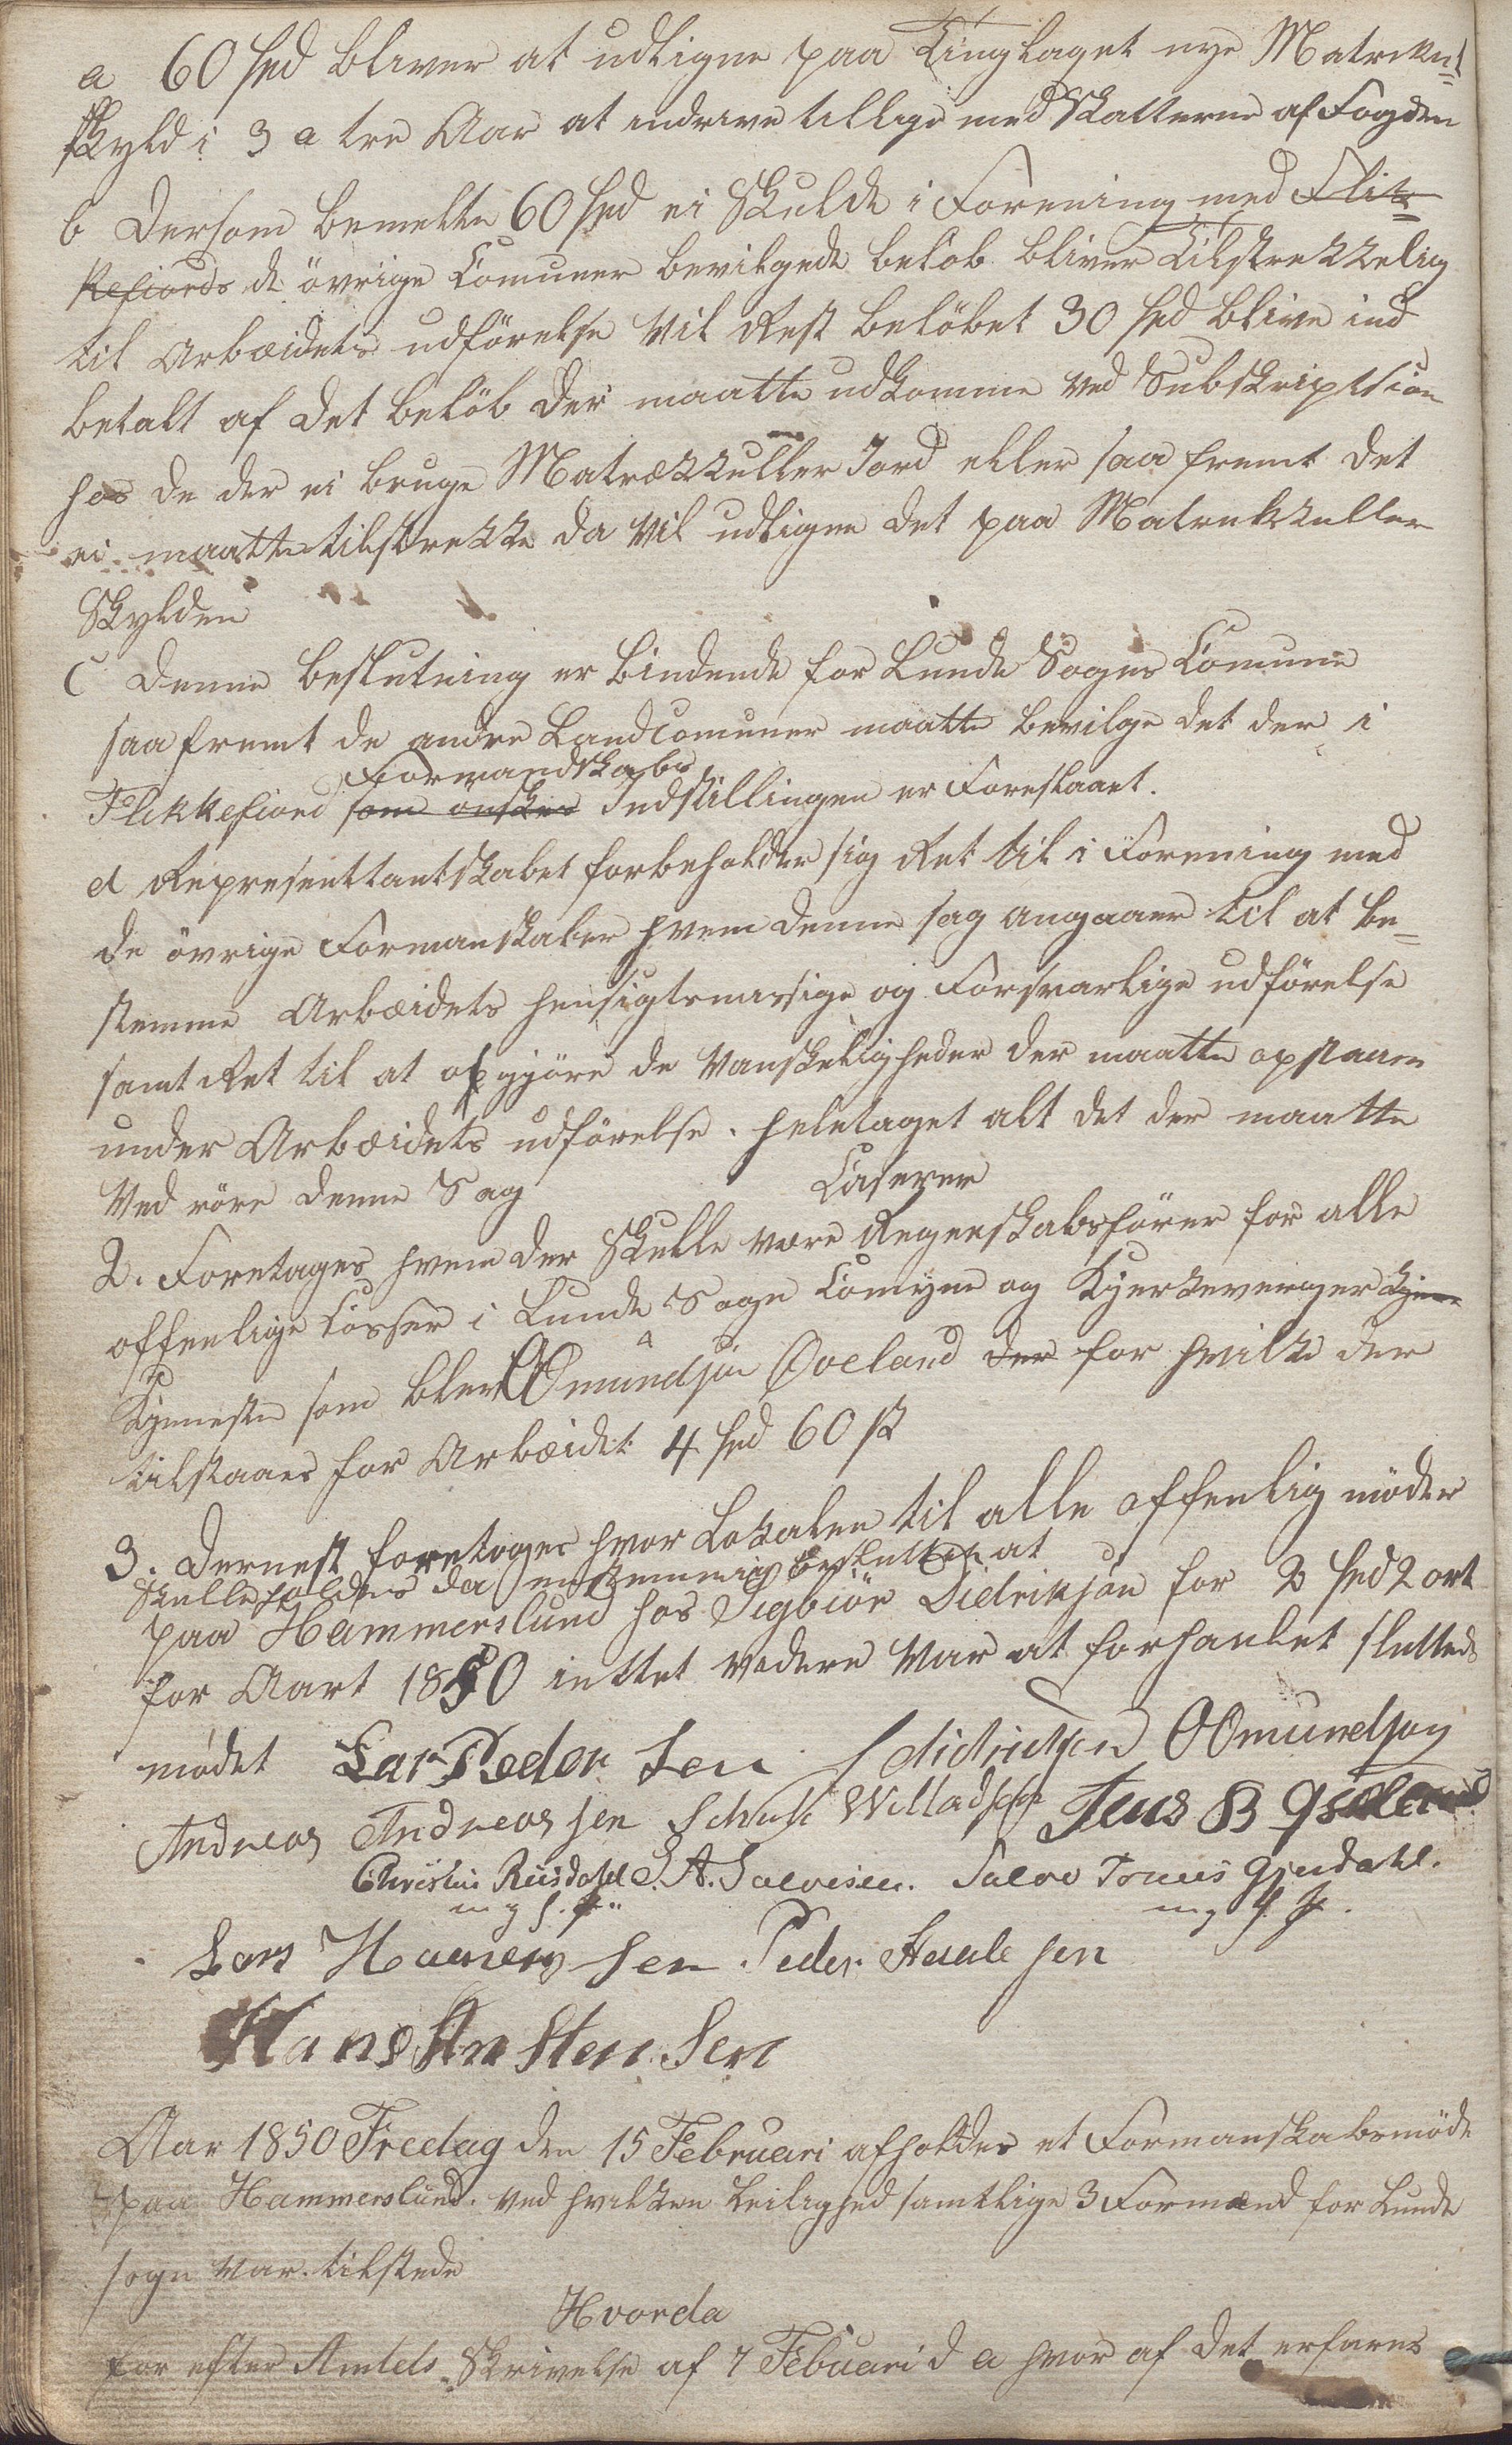 a 60 spd bliver at udligne paa Tinglaget nye Matrikul=
skyld i 3 a tre Aar at indrive tillige med Skatterne af Fogden
b Dersom bemelte 60 spd ei Skulde i Forening med Flik=
kefiords de övrige Comuner bevilgede belöb bliver Tilstrekkelig
til Arbæidets udförelse Vil Rest belöbet 30 spd blive ind
betalt af det belöb der maatte udkomme ved Subskriptsion
hos de der ei bruge Matrækkuller Jord eller saa fremt det
ei maatte tilstrekke da Vil udligne det paa Matrekkuller
Skylden
C Denne beslutning er bindende for Lunde Sogns Comune
saa fremt de andre Landcomuner maatte bevilge det der i
Formandskabs
Flekkefiord som önsker Indstillingen er Foreslaaet.
d Representtantskabet forbeholder sig Ret til i Forening med
de övrige Formanskaber hvem denne sag angaaer til at be=
stemme Arbæidets hensigtsmessige og Forsvarlige udförelse
samt Ret til at opgjöre de Vanskeligheder der maatte opstaaen
under Arbæidets udförelse. heletaget alt det der maatte
Ved röre denne Sag
Caserer
2. Foretages hvem der Skulle være Regenskabsförer for alle
offenlige Casser i Lunde Sogn Comyne og Kjerkeverger
Tjeneste som blev O Omundsøn Øveland der for hvilke der
tilstaaes for Arbæidet 4 spd 60 sk
3. Dernest foretoges hvor Lokalen til alle offenlig möder
Skulle holdes da enstemmig besluttet at
paa Hammerslund hos Sigbiör Didriksøn for 2 spd 2 ort
for Aart 1850 inttet videre Var at forhanlet sluttede
mødet Lar Peder Sen S Didriksen O Omundson
Andreas Andreas sen Schule Willadsen Jens B Eseland
Christin Rusdahl S. A. Salvesen. Salve Tonnis Gjerdahl.
m f. P. m f P.
Lars Hansen Sen Peder Aadne sen
Hans An Sten Sen
Aar 1850 Fredag den 15 Februari afholdes et Formanskabsmöde
paa Hammerslund. ved hvilken Leilighed samtlige 3 Formænd for Lunde
sogn var tilstede
Hvorda
for efter Amtets Skrivelse af 7 Febuari d a hvor af det erfares